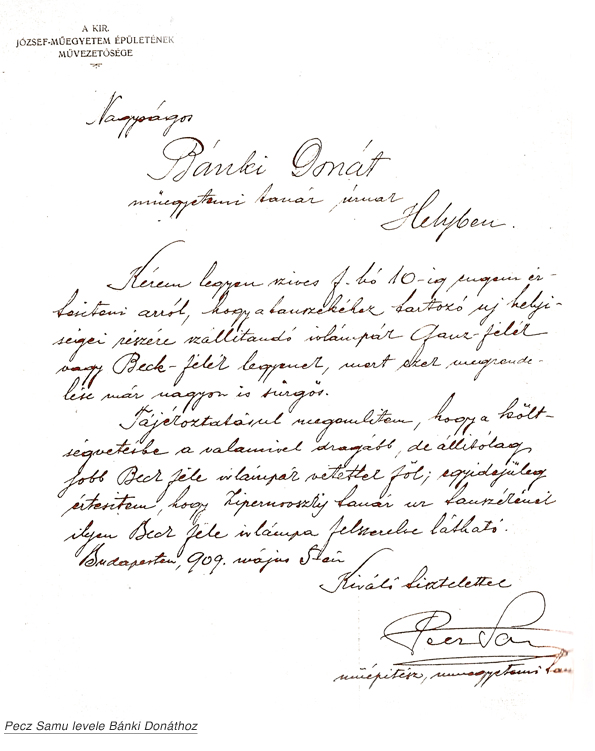 A KIR.
JÓZSEF-MŰEGYETEM ÉPÜLETÉNEK
MŰVEZETŐSÉGE
Nagyságos
Bánki Donát
műegyetemi tanár úrnak
Helyben.
Kérem legyen szives f. hó 10-ig engem ér-
tesiteni arról, hogy a tanszékéhez tartozó uj helyi-
ségei részére szállitandó ivlámpák Ganz-félék
vagy Beck-félék legyenek, mert ezek megrende-
lése már nagyon is sürgős.
Tájékoztatásul megemlitem, hogy a költ-
ségvetésbe a valamivel drágább, de állitólag
jobb Beck féle ivlámpák vétettek föl; egyidejüleg
értesitem, hogy Zipernovszky tanár ur tanszékénél
ilyen Beck féle ivlámpa felszerelve látható.
Budapesten, 909. május 5-én
Kiváló tisztelettel
Pecz Samu
műépitész, műegyetemi tan
Pecz Samu levele Bánki Donáthoz